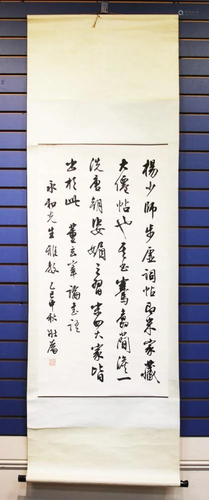 楊少師步虛詞帖即米家藏
大儒帖也其書騫翥簡澹一
洗唐朝姿媚之習宋四大家皆
出於此 董玄宰論書語
永和先生雅教 乙巳中秋